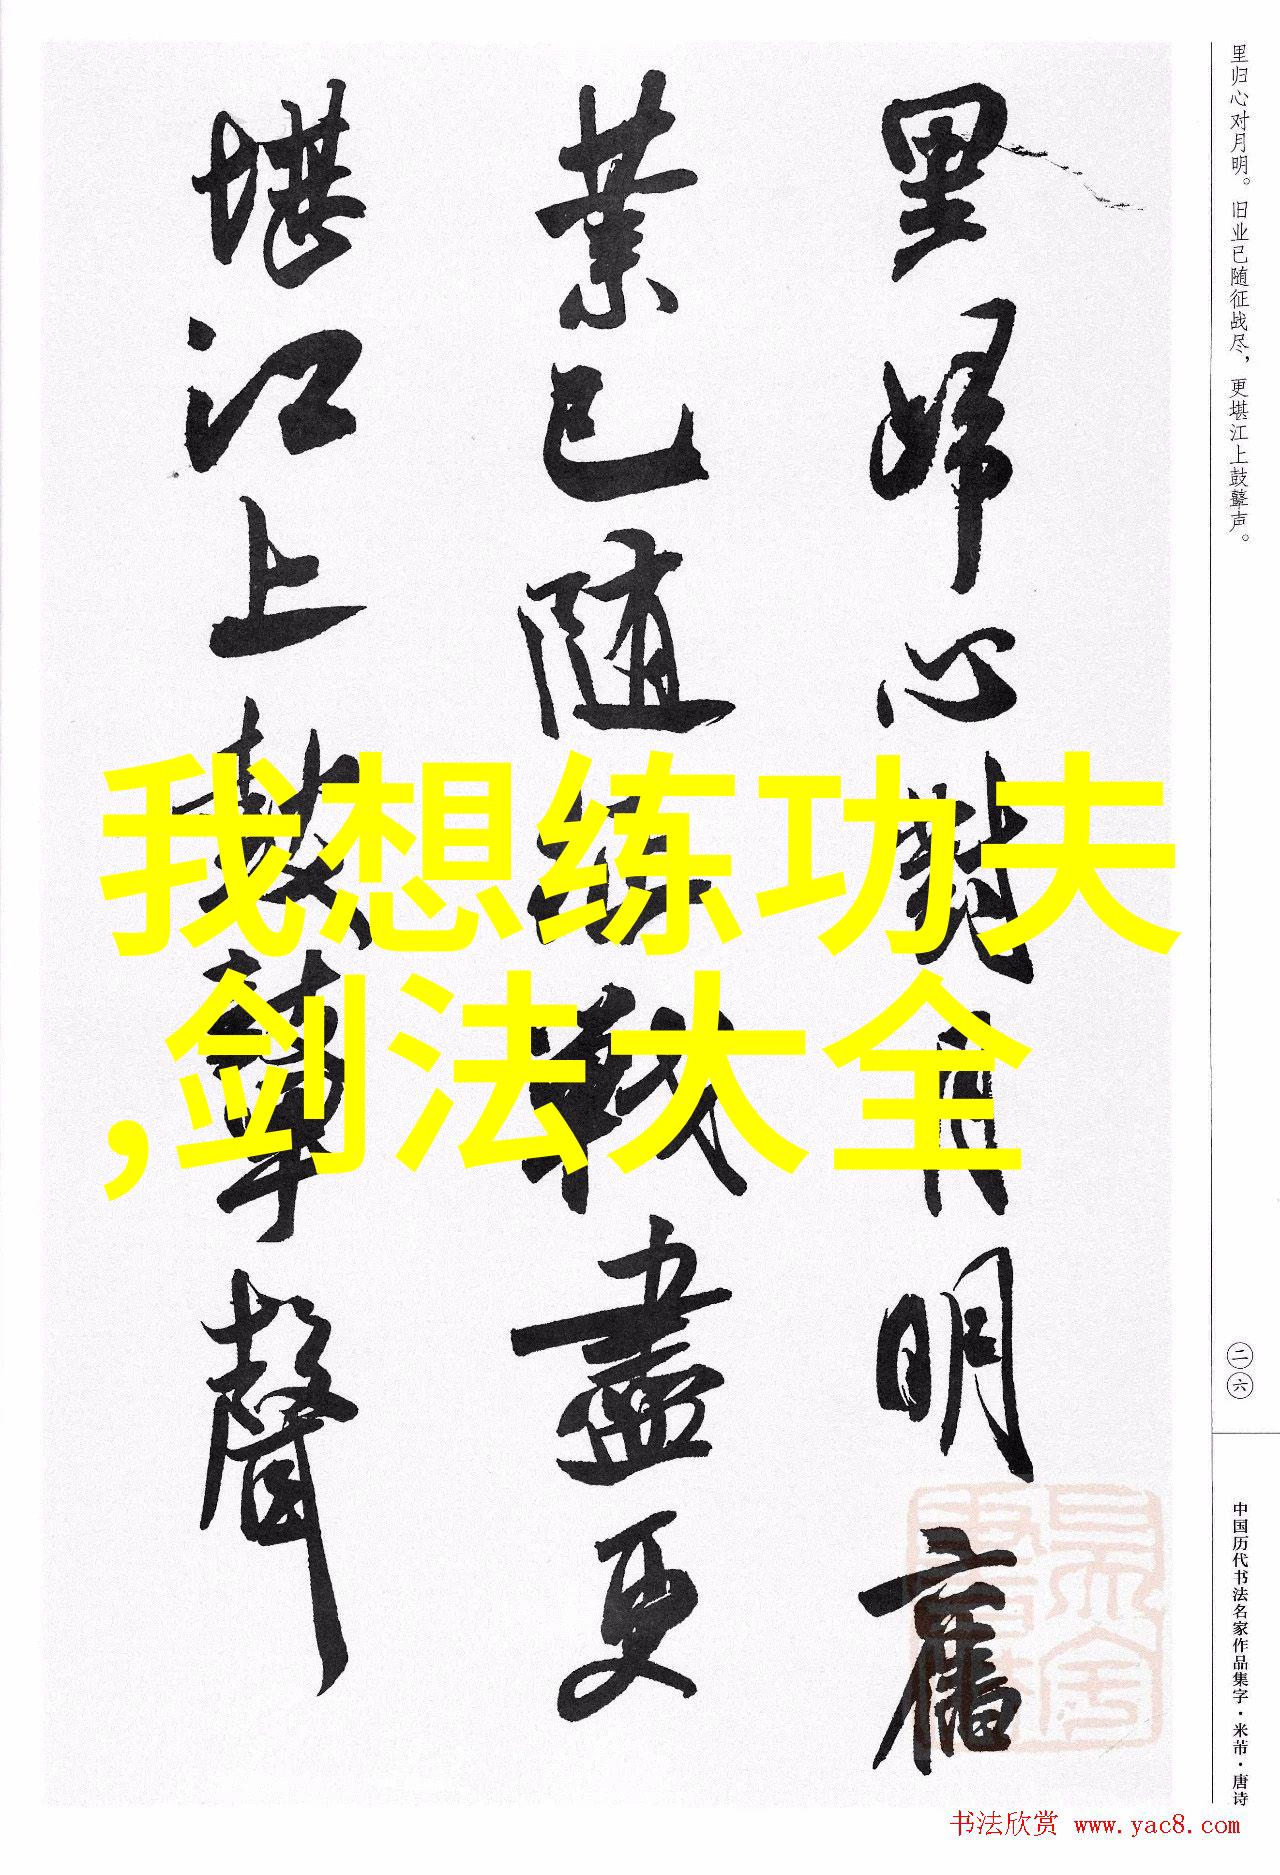 里歸心對月明舊
業已隨征戰盡更
堪江上鼓鼙聲
我想练功夫
,剑法大全
里归心对月明。旧业已随征战尽，更堪江上鼓鼙声。
二六
中国历代书法名家作品集字·米芾·唐诗
书法欣赏 www.yac8.com